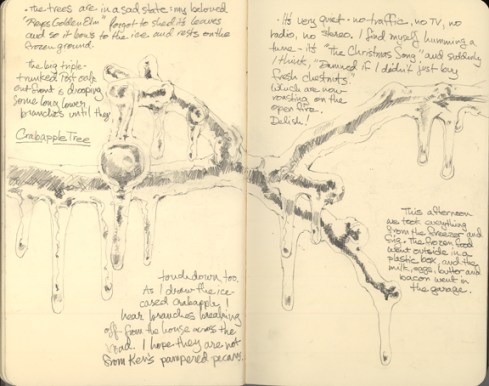 • The trees are in a sad state: my beloved
Golden Elm" forgot to shed its leaves
and so it bows to the ice and rests on the
frozen ground.
The big triple-
trunked Post Oak
out front is drooping
some long, lower
branches until they
Crabapple Tree
touchdown, too.
As I draw the ice-
cased crabapple, I
hear branches breaking
off from the house across the
road. I hope they are not
from Ken's pampered pecans.
• It's very quiet - no traffic, no TV, no
radio, no stereo. I find myself humming a
tune - it's "The Christmas Song" and suddenly
I think, "Damned if I didn't just buy
fresh chestnuts"
Which are now
roasting on the
open fire.
Delish!
This afternoon
we took everything
from the freezer and
frig. The frozen food
went outside in a
plastic box, and the
milk, eggs, butter and
bacon went in
the garage.